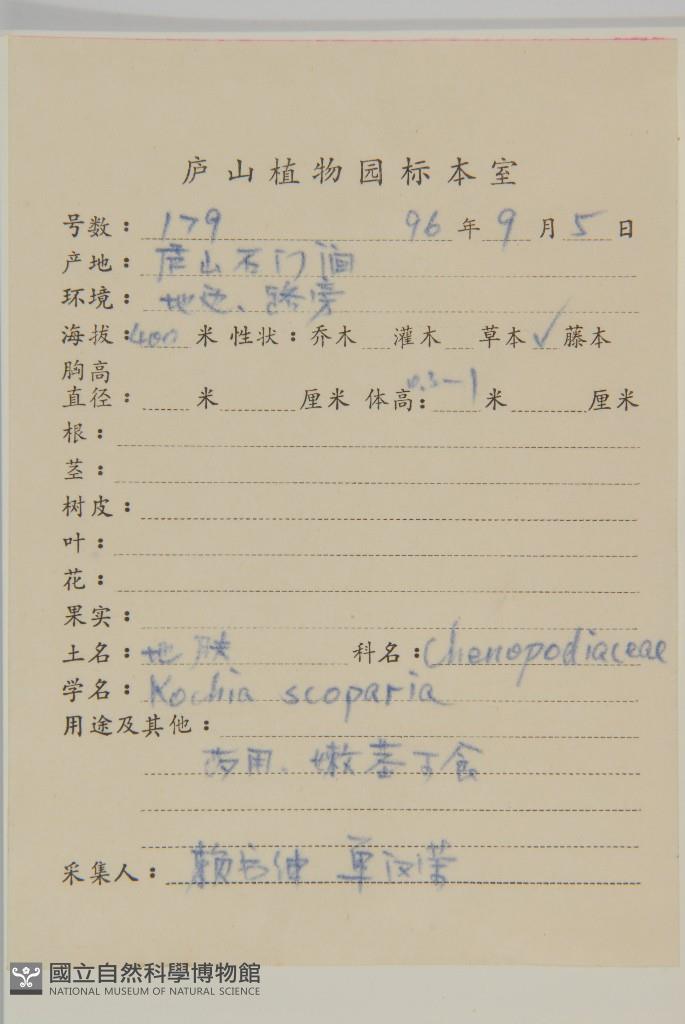 庐山植物园标本室
号数：179 96年9月5日
产地：庐山石门涧
环境：地边、路旁
海拔：400米 性状：乔木 灌木 草本✓藤本
胸高
直径： 米 厘米 体高：0.3－1米 厘米
根：
茎：
树皮：
叶：
花：
果实：
土名：地肤 科名：Chenopodiaceae
学名：Kochia scoparia
用途及其他：
药用、嫩茎可食
采集人：赖书绅 单汉荣
國立自然科學博物館
NATIONAL MUSEUM OF NATURAL SCIENCE